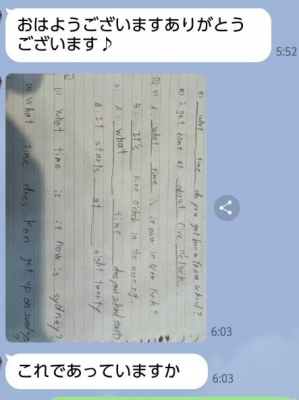 おはようございますありがとう
ございます♪
5:52
what time do you get home from school?
I get home at about five o'clock.
A: what time is it now in New York?
B: It's nine o'clock in the morning.
A: what time does your school start?
B: It starts at eight twenty
(1) What time is it now is sydney?
What time does ken get up on sunday
6:03
これであっていますか
6:03